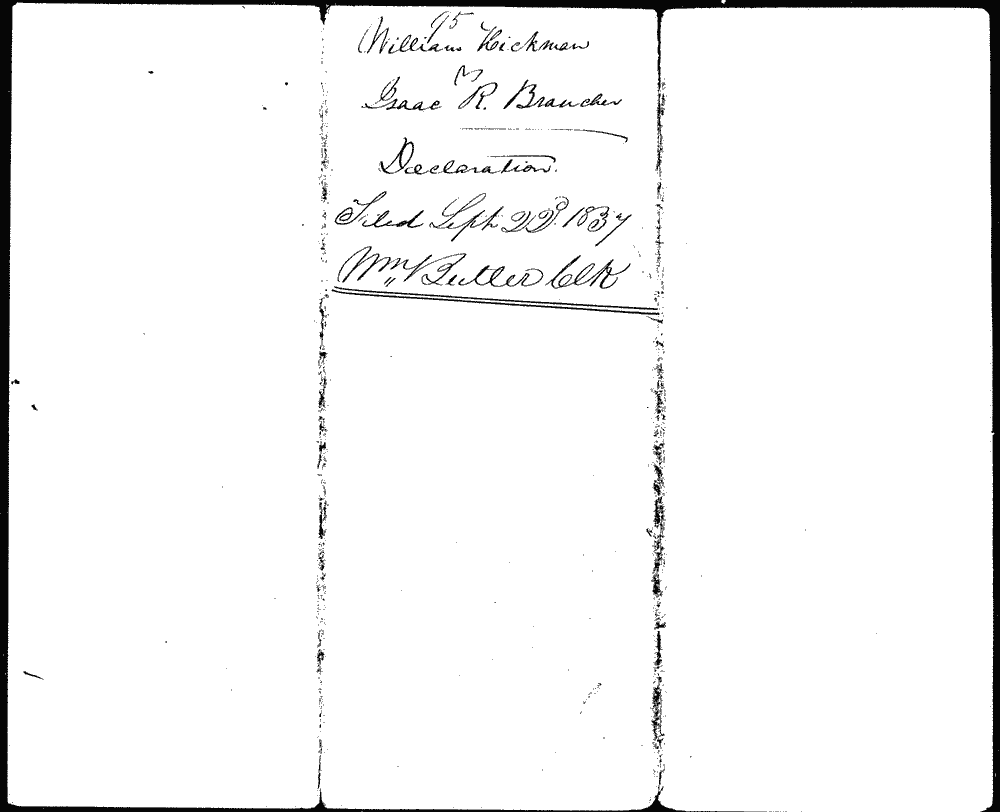 95
William Hickman
vs
Isaac R. Brancher
Declaration.
Filed Sept. 22d. 1837
Wm Butler Clk